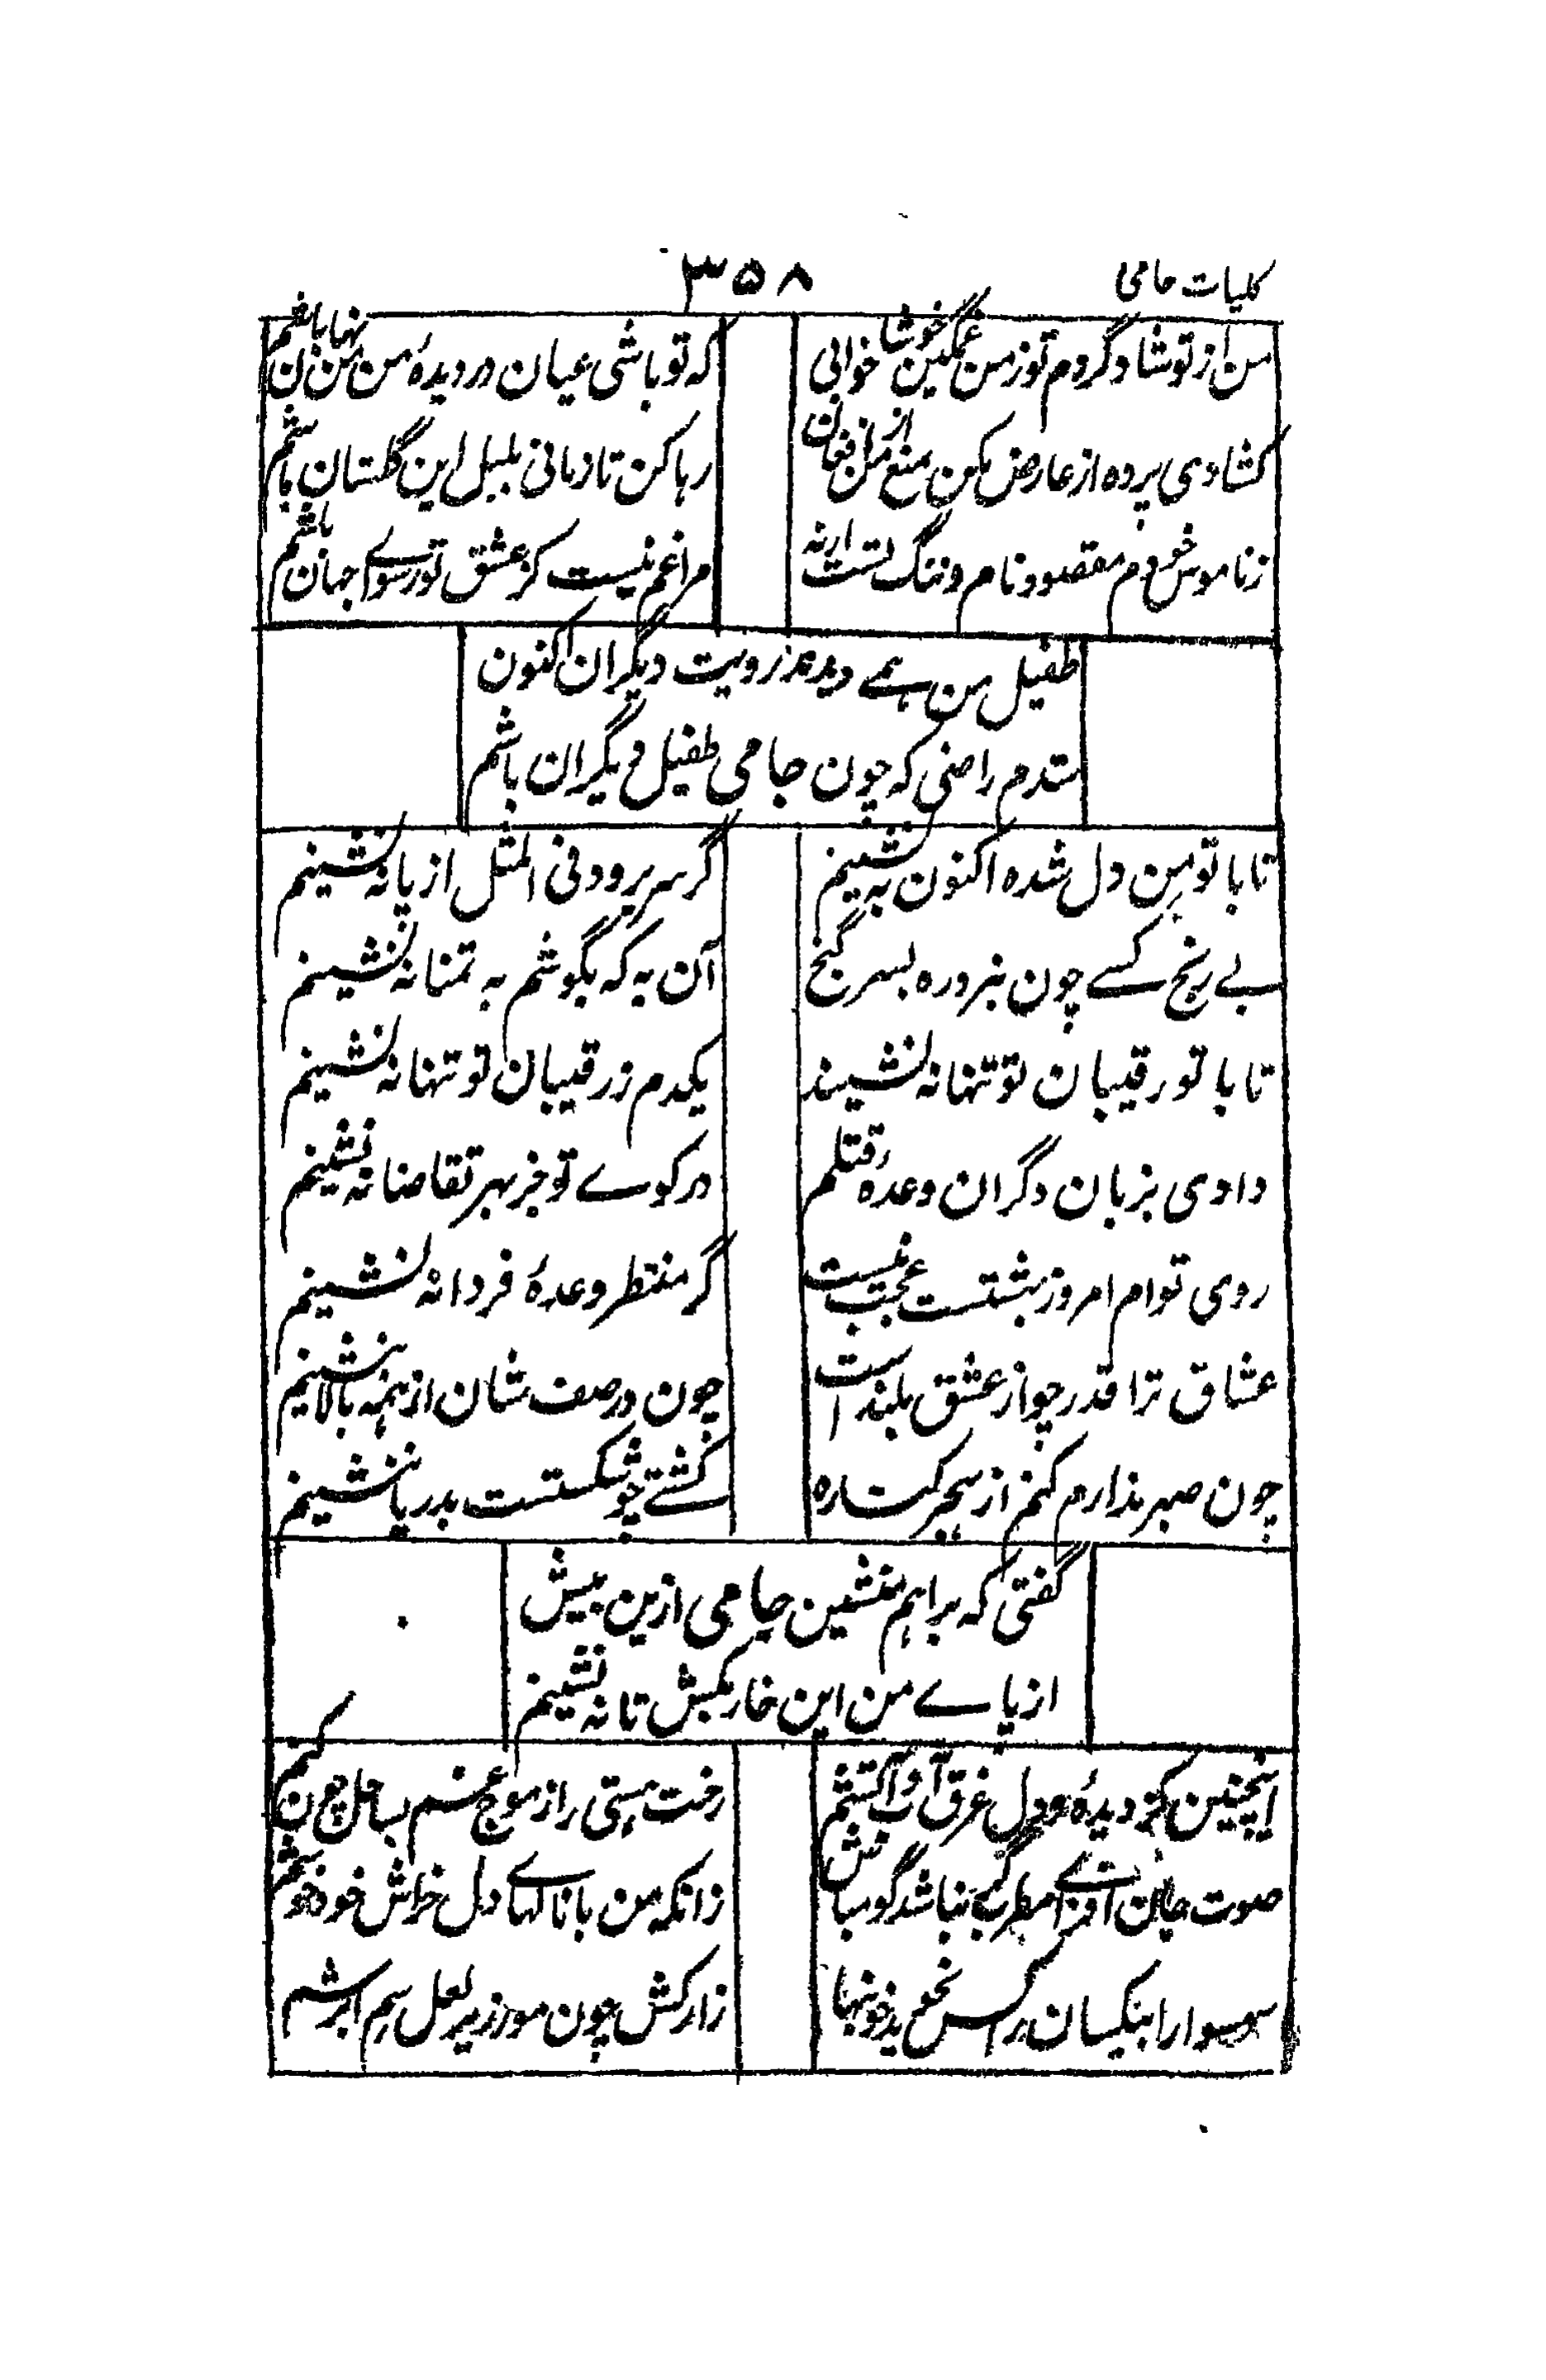 کلیات جامی
۳۵۸
من از تو شاد گردم تو ز من غمگین خوشا خوابی
که تو باشی عیان در دیدهٔ من من نهان باشم
کشادی پرده از عارض مکن منع من از افغان
رها کن تا زمانی بلبل این گلستان باشم
ز ناموس خودم مقصود نام و ننگ تست ارنه
مرا غم نیست کز عشق تو رسوای جهان باشم
طفیل من همے دیدند رویت دیگران اکنون
شدم راضی که چون جامی طفیل دیگران باشم
تا با تو من دل شده اکنون به نشینم
گر سر برود فی المثل از پا نه نشینم
بے رنج کسے چون نبرد ره بسر گنج
آن به که بکوشم به تمنا نه نشینم
تا با تو رقیبان تو تنها نه نشیند
یکدم ز رقیبان تو تنها نه نشینم
دادی بزبان دگران وعده قتلم
در کوے تو جز بهر تقاضا نه نشینم
روی توام امروز بهشتست عجب نیست
گر منتظر وعدهٔ فردا نه نشینم
عشاق ترا قدر چو از عشق بلند است
چون در صف شان از همه بالا ننشینم
چون صبر ندارم کنم از هجر کناره
کشتے چو شکستست بدریا ننشینم
گفتی که براهم منشین جامی ازین بیش
از پاے من این خار بکش تا نه نشینم
اینچنین کز دیدهٔ و دل غرق آب و آتشم
رخت هستی را ز موج غم بساحل چون کشم
صوت جان افزاے مطرب گر نباشد گو مباش
زانکه من با نالهاے دل خراش خود خوشم
سوارا بیکسان را کس نخواهد خونبها
زار کش چون مور زیر لعل سم ابرشم